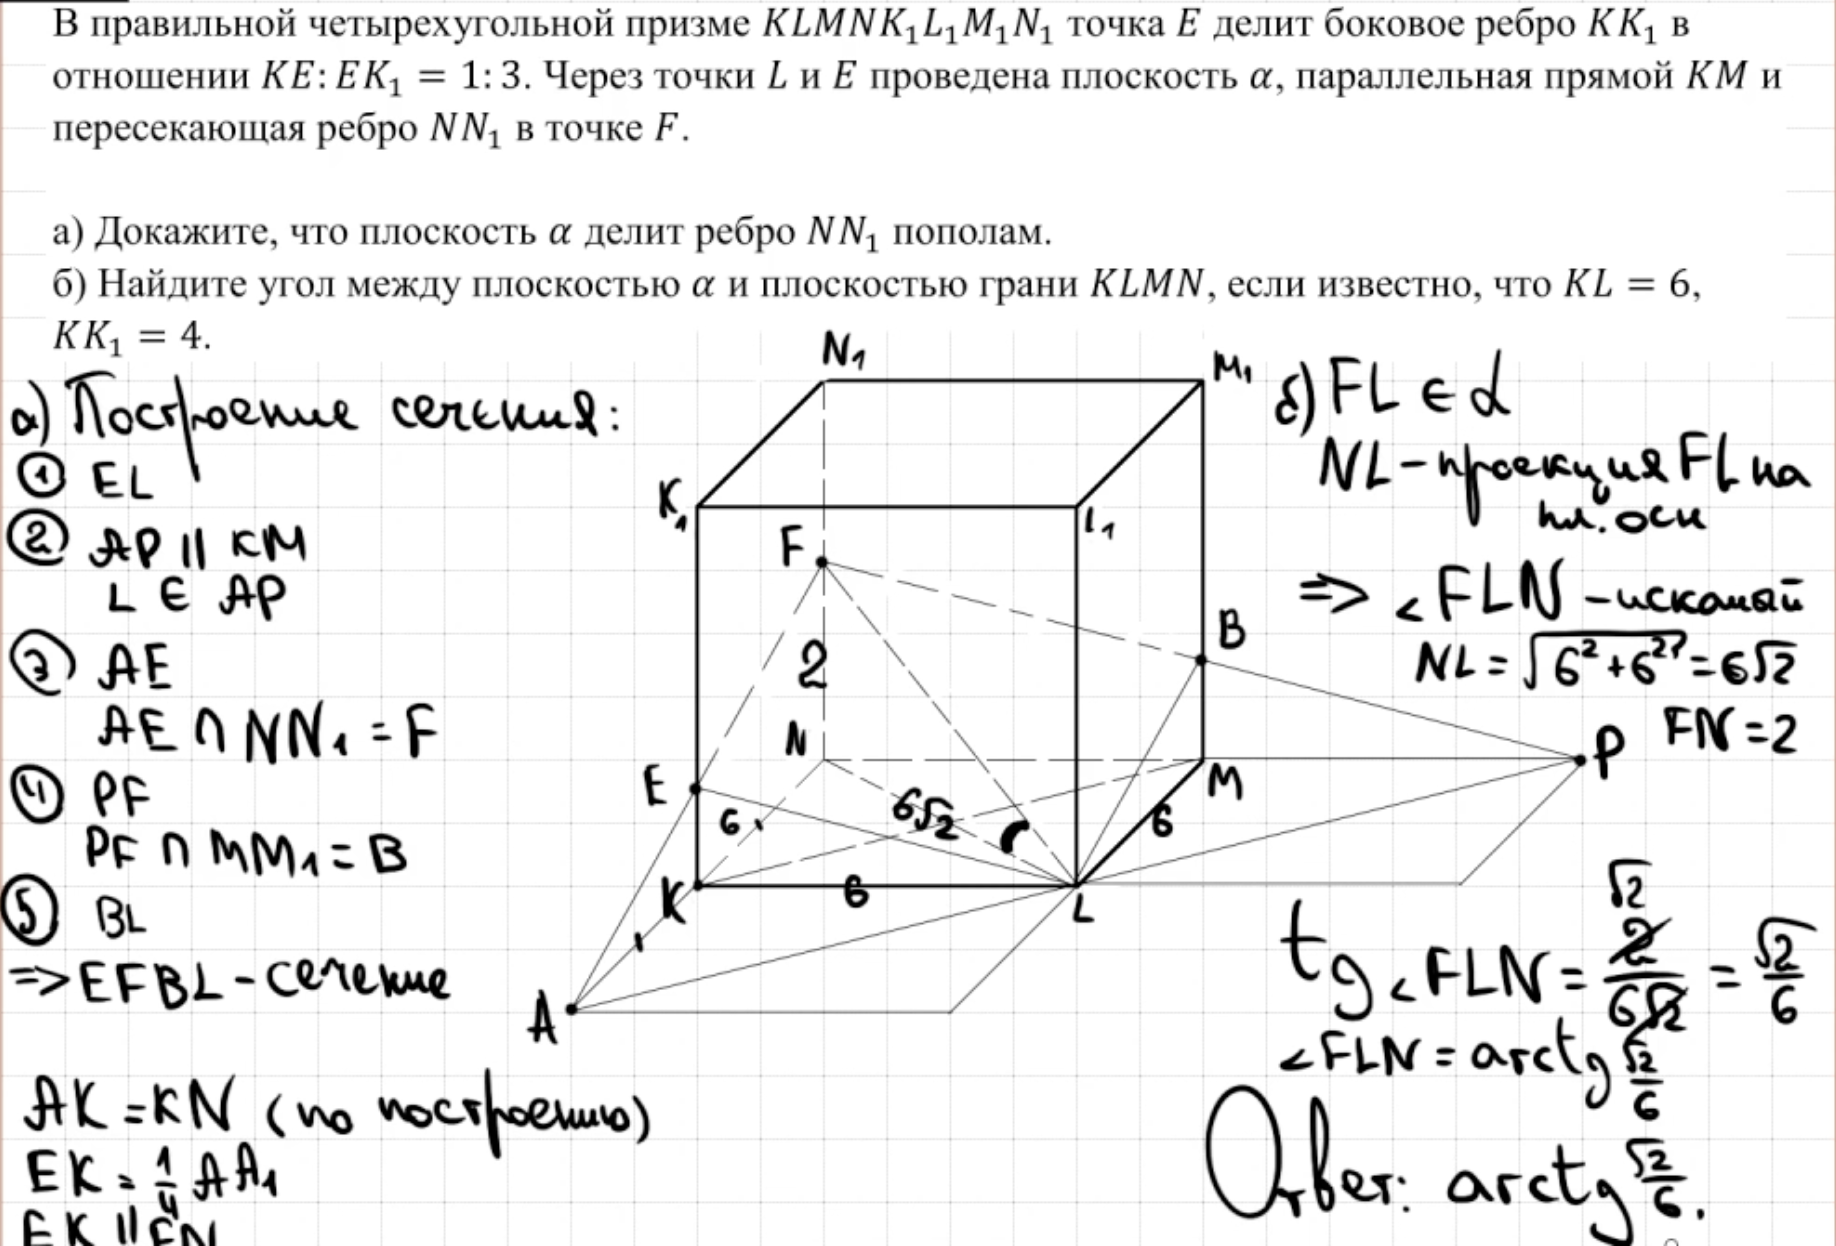 В правильной четырехугольной призме KLMNK₁L₁M₁N₁ точка E делит боковое ребро KK₁ в
отношении KE: EK₁ = 1: 3. Через точки L и E проведена плоскость α, параллельная прямой KM и
пересекающая ребро NN₁ в точке F.
а) Докажите, что плоскость α делит ребро NN₁ пополам.
б) Найдите угол между плоскостью α и плоскостью грани KLMN, если известно, что KL = 6,
KK₁ = 4.
а) Построение сечения:
① EL
② AP || KM
L ∈ AP
③ AE
AE ∩ NN₁ = F
④ PF
PF ∩ MM₁ = B
⑤ BL
=> EFBL - сечение
AK = KN (по построению)
EK = 1/4 AA₁
EK || FN
N₁
M₁
K₁
L₁
F
2
B
N
E
6
6√2
M
6
P
K
6
L
A
б) FL ∈ α
NL - проекция FL на
пл. осн
=> ∠FLN - искомый
NL = √(6² + 6²) = 6√2
FN = 2
√2
tg ∠FLN = 2/(6√2) = √2/6
∠FLN = arctg √2/6
Ответ: arctg √2/6.